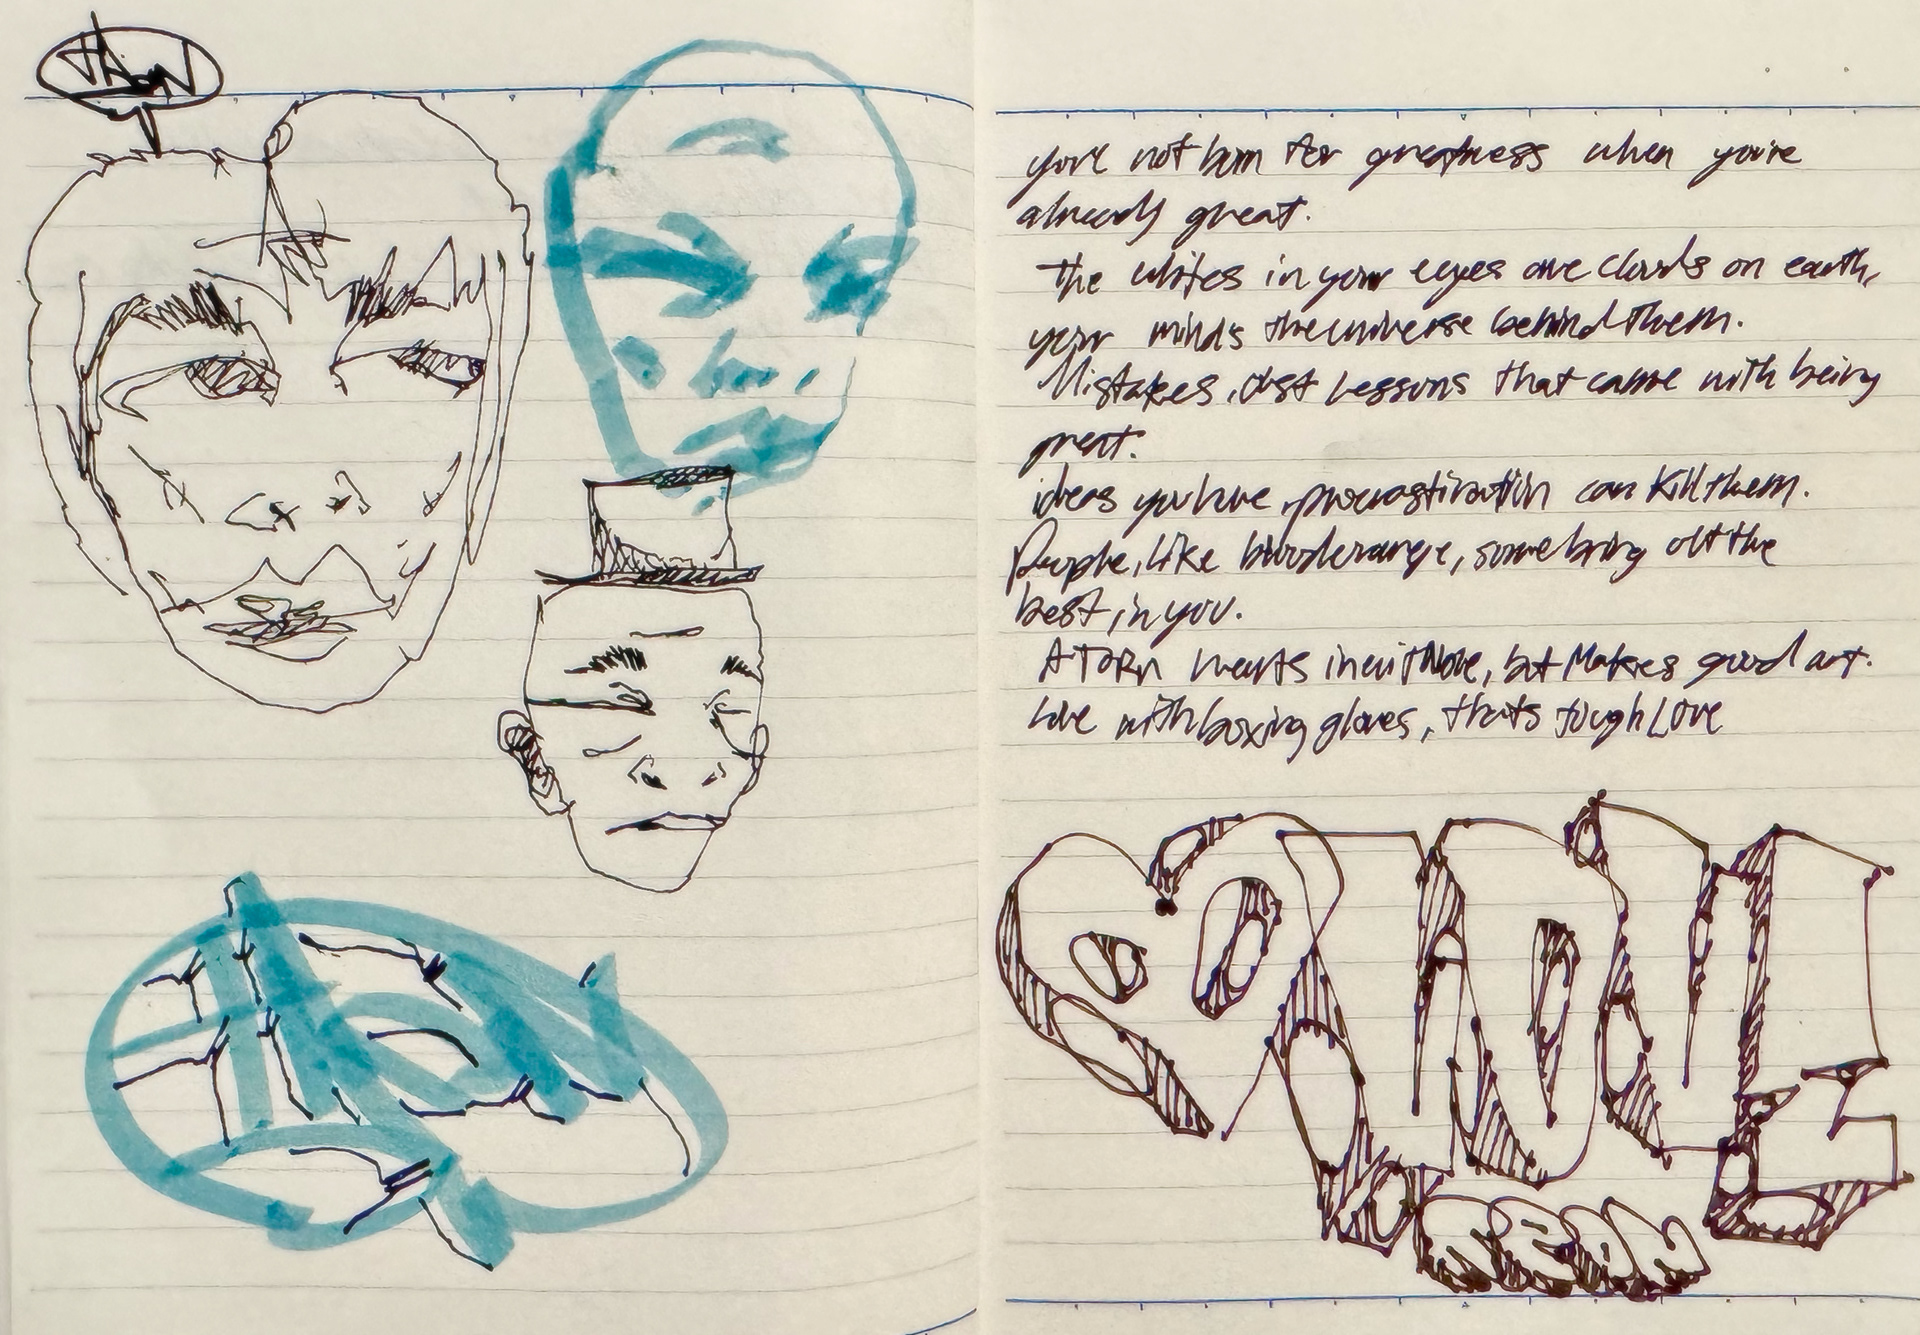 JASON
you're not born for greatness when you're
already great.
The whites in your eyes are clouds on earth,
your mind's the universe behind them.
Mistakes, just Lessons that came with being
great.
ideas you have, procrastination can kill them.
People, like blood orange, some bring out the
best, in you.
A TORN hearts inevitable, but Makes good art.
Love with boxing gloves, thats tough Love